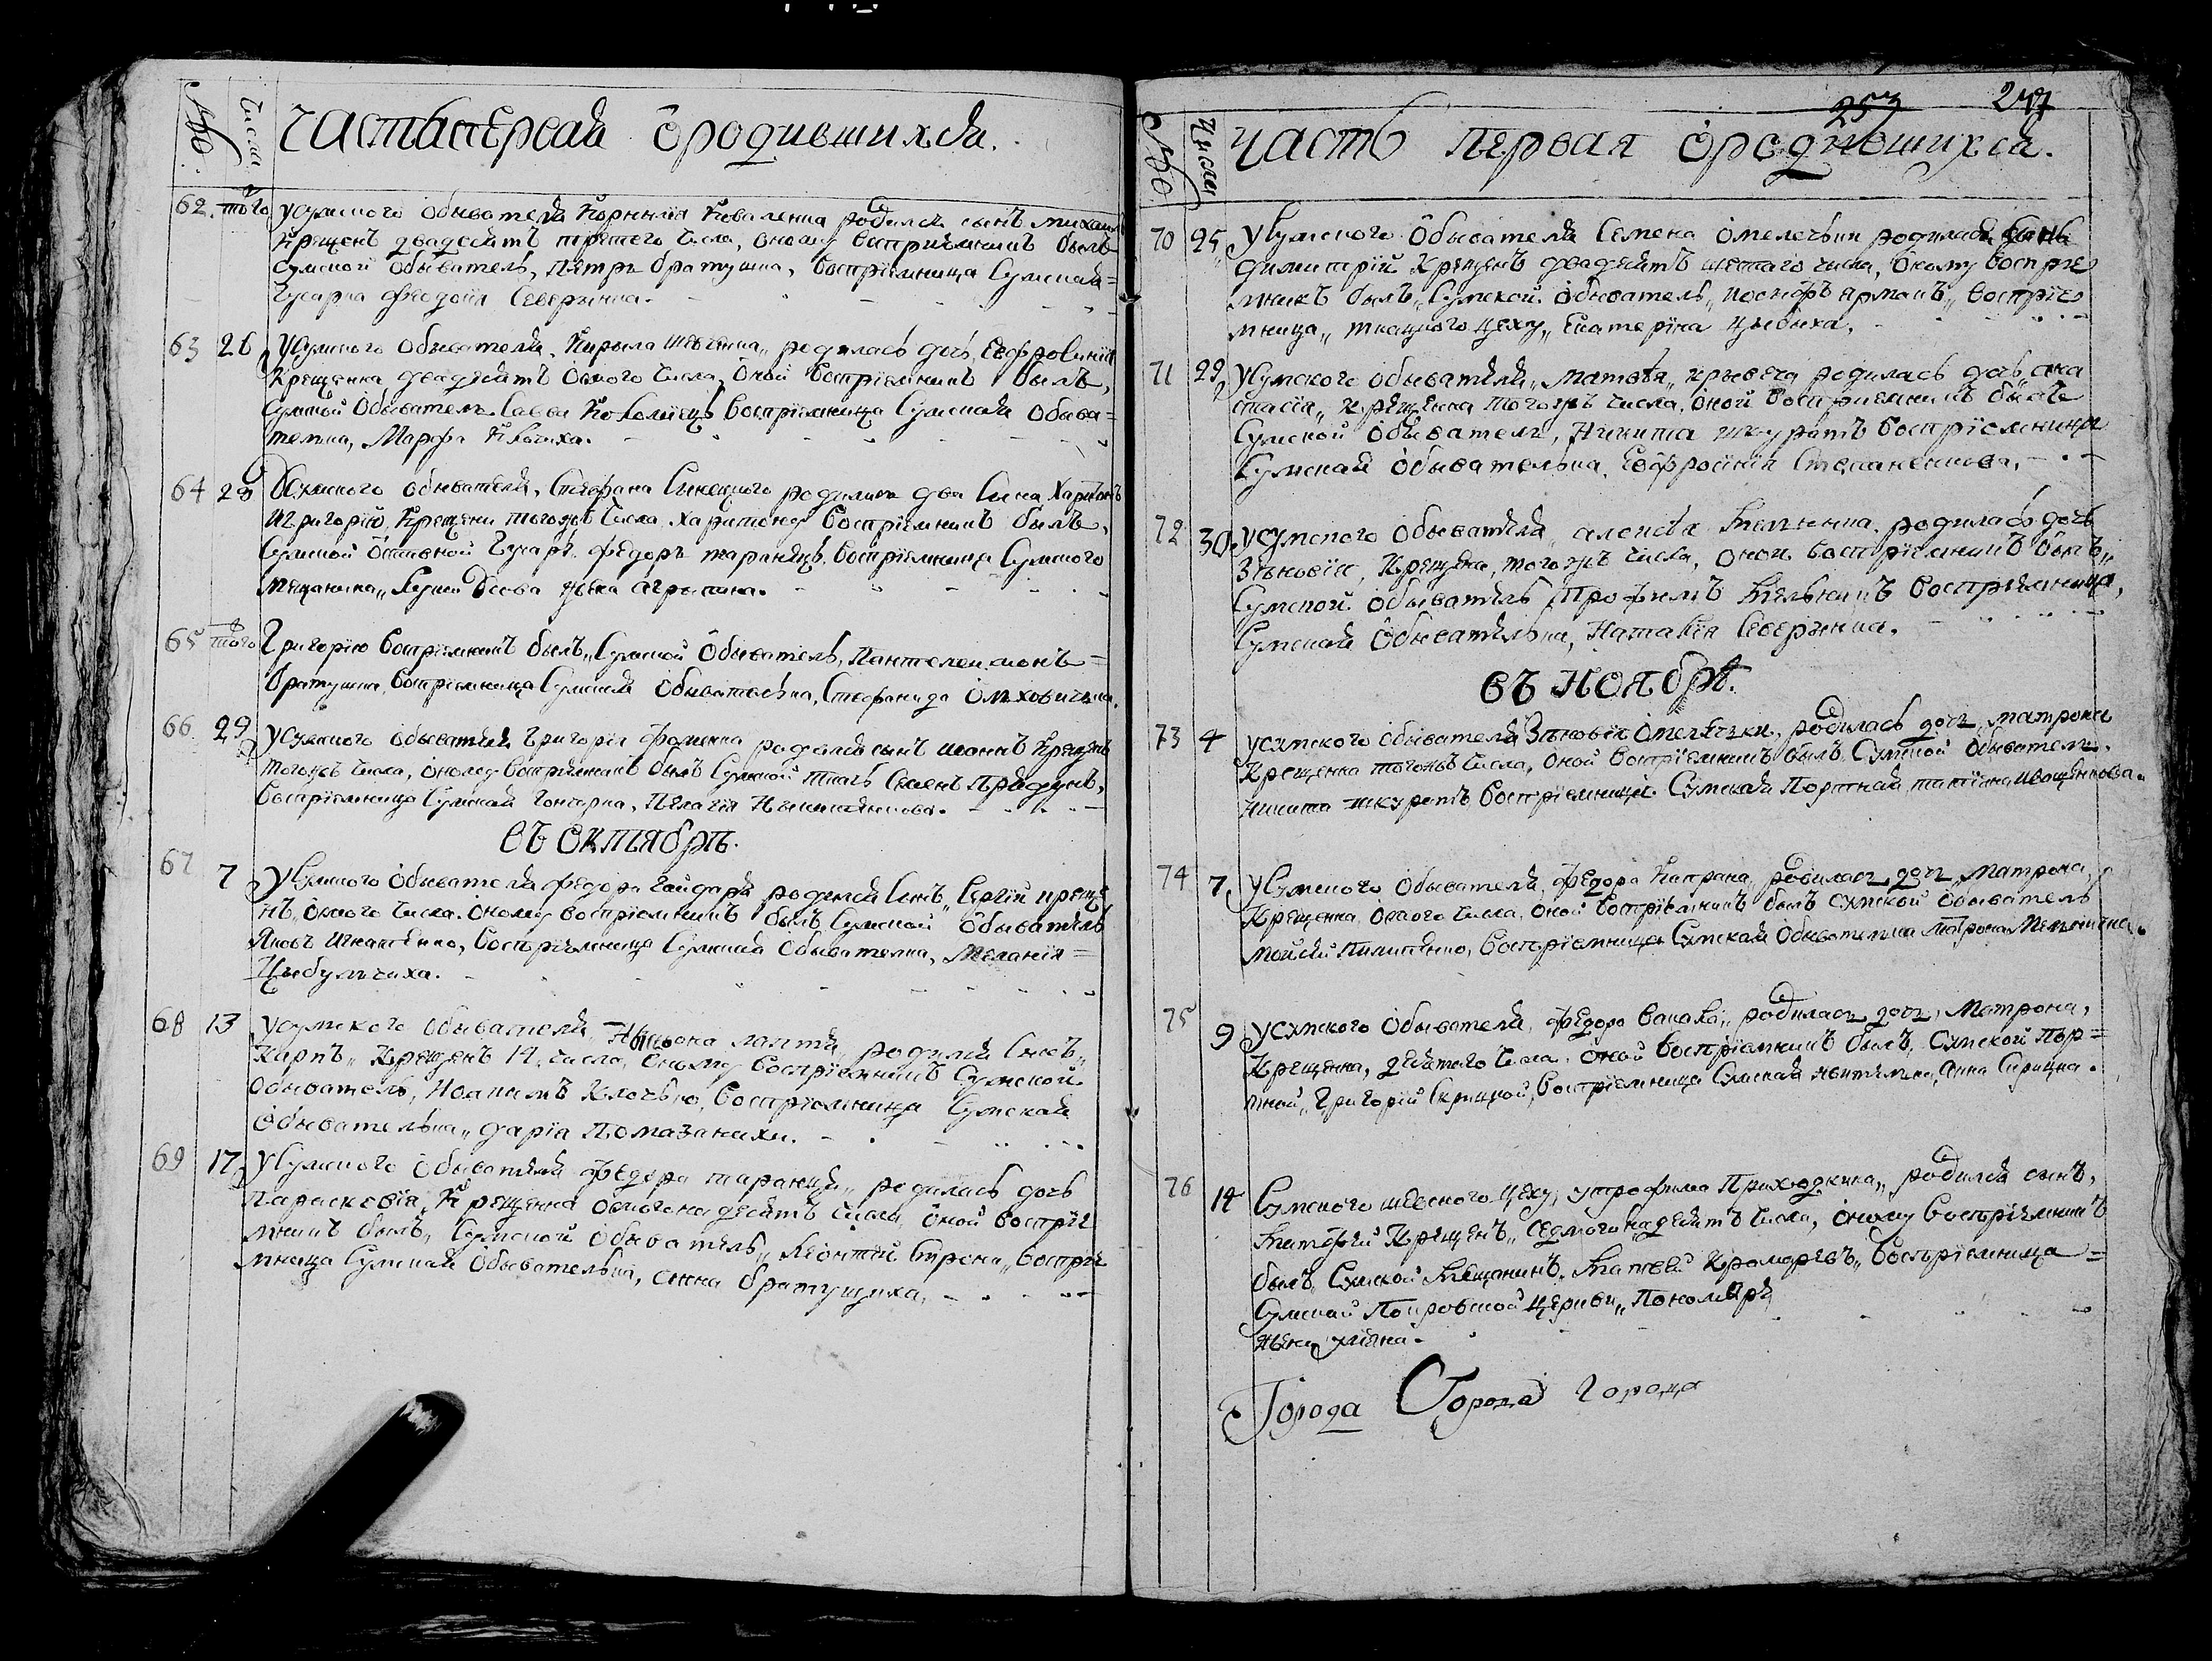 №
Числа
Часть первая о родившихся.
62. того
у сумского обывателя Корнилия Коваленка родился сынъ Михаилъ
Крещенъ двадесятъ третего числа, оному восприемникъ былъ
сумской обыватель, Петръ братушка, восприемница Сумская=
гусарка Феодосия Северинка.
63 26
У Сумского обывателя, Кирыла Шевченка, родилась дочь, Евфросиния
Крещенна двадесятъ осмого числа, оной восприемникъ былъ,
Сумской обыватель Савва Коломиецъ восприемница Сумская обыва=
телка, Марфа
64 28
У Сумского обывателя, Стефана родились два сына Харитонъ
и Григорий, Крещени того жъ числа Харитону восприемникъ былъ,
Сумской отставной гусаръ, Федоръ таранецъ, восприемница Сумского
мещанина, жена агрипина.
65 того
Григорию восприемникъ былъ, Сумской обыватель, Пантелеимонъ=
братушка, восприемница Сумская обывателка, Стефанида
66 29
у сумского обывателя Григория Фоменка родился сынъ иоаннъ крещенъ
того жъ числа, оному восприемникъ былъ Сумской ткачъ Семенъ
восприемница Сумская гончарка, Пелагия
въ октябрѣ.
67 7
У Сумского обывателя Федора гайдаря родился сынъ, Сергий креще
нъ, осмого числа. оному восприемникъ былъ Сумской обыватель
Яковъ Игнатенко, восприемница Сумская обывателка, Мелания=
Цыбулчиха.
68 13
У сумского обывателя, лаптя, родился сынъ,
Карпъ, Крещенъ 14, числа, оному восприемникъ Сумской
обыватель, Иоакимъ восприемница Сумская
обывателька, дария Помазаниха.
69 17
У Сумского обывателя Федора таранца, родилась дочь
параскевия, Крещенна осмогонадесятъ числа, оной восприе
мникъ былъ, Сумской обыватель, Леонтий восприе
мница Сумская обывателька, анна братущиха,
253 247
№
Числа
Часть первая о родившихся.
70 25
У Сумского обывателя Семена омелечки родился сынъ
димитрий Крещенъ двадесятъ шестаго числа, оному восприе
мникъ былъ, Сумской обыватель, иосифъ ярмакъ, восприе
мница, ткацкого цеху, Екатерина цыбиха,
71 29
У Сумского обывателя, матвѣя, родилась дочь, ана
стасия, Крещенна того жъ числа, оной восприемникъ былъ
Сумской обыватель, Никита шкуратъ восприемница
Сумская обывателька, Евфросиния Степаненкова,
72 30
у сумского обывателя, алексѣя родилась дочь
Зѣновия, Крещенна, того жъ числа, оной восприемникъ былъ,
Сумской обыватель Трофимъ восприемница,
Сумская обывателька, Наталия Северинка.
въ ноябрѣ.
73 4
у сумского обывателя Зѣновия омелѣчки, родилась дочь, матрона
Крещенна того жъ числа, оной восприемникъ былъ Сумской обыватель.
никита шкуратъ восприемница. Сумская Портная татиана иващенкова.
74 7
У Сумского обывателя, Федора Капрана, родилась дочь, матрона,
Крещенна осмого числа, оной восприемникъ былъ сумской обыватель
Мойсей Пилипенко, восприемница Сумская обывателка матрона
75 9
у сумского обывателя, Федора родилась дочь, Матрона,
Крещенна, десятого числа. оной восприемникъ былъ, Сумской пор=
тной, Григорий Скрицкой, восприемница Сумская жителка, анна
76 14
Сумского шевского цеху, у трофима Приходкина, родился сынъ,
матѳей Крещенъ, седмогонадесятъ числа, оному восприемникъ
былъ, Сумской мещанинъ, матвей Крамаревъ, восприемница=
Сумской Покровской церкви, Пономаря
жена улияна.
Города Города города